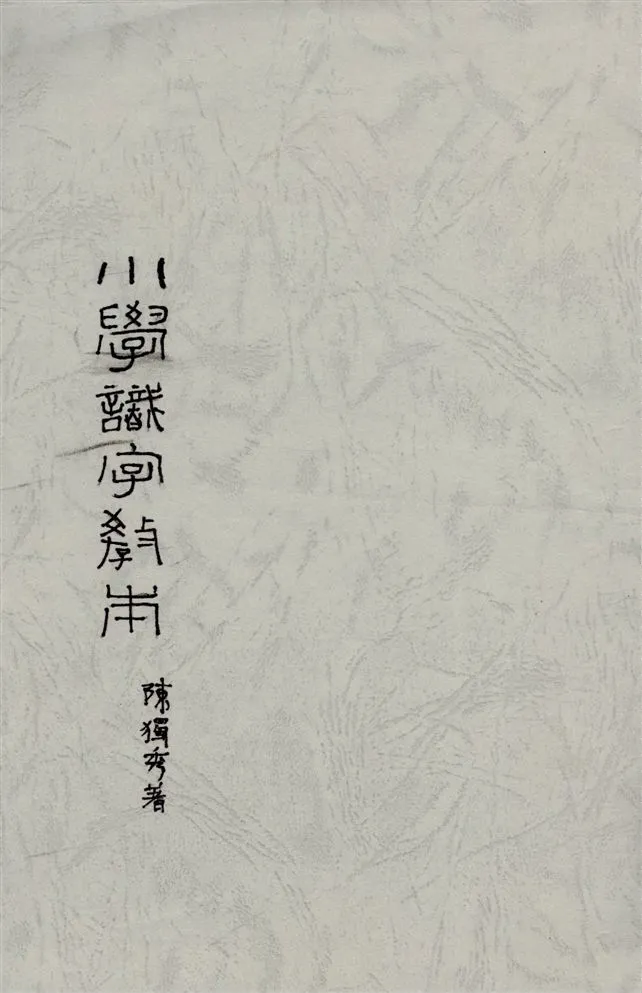 小學識字教本
陳獨秀著